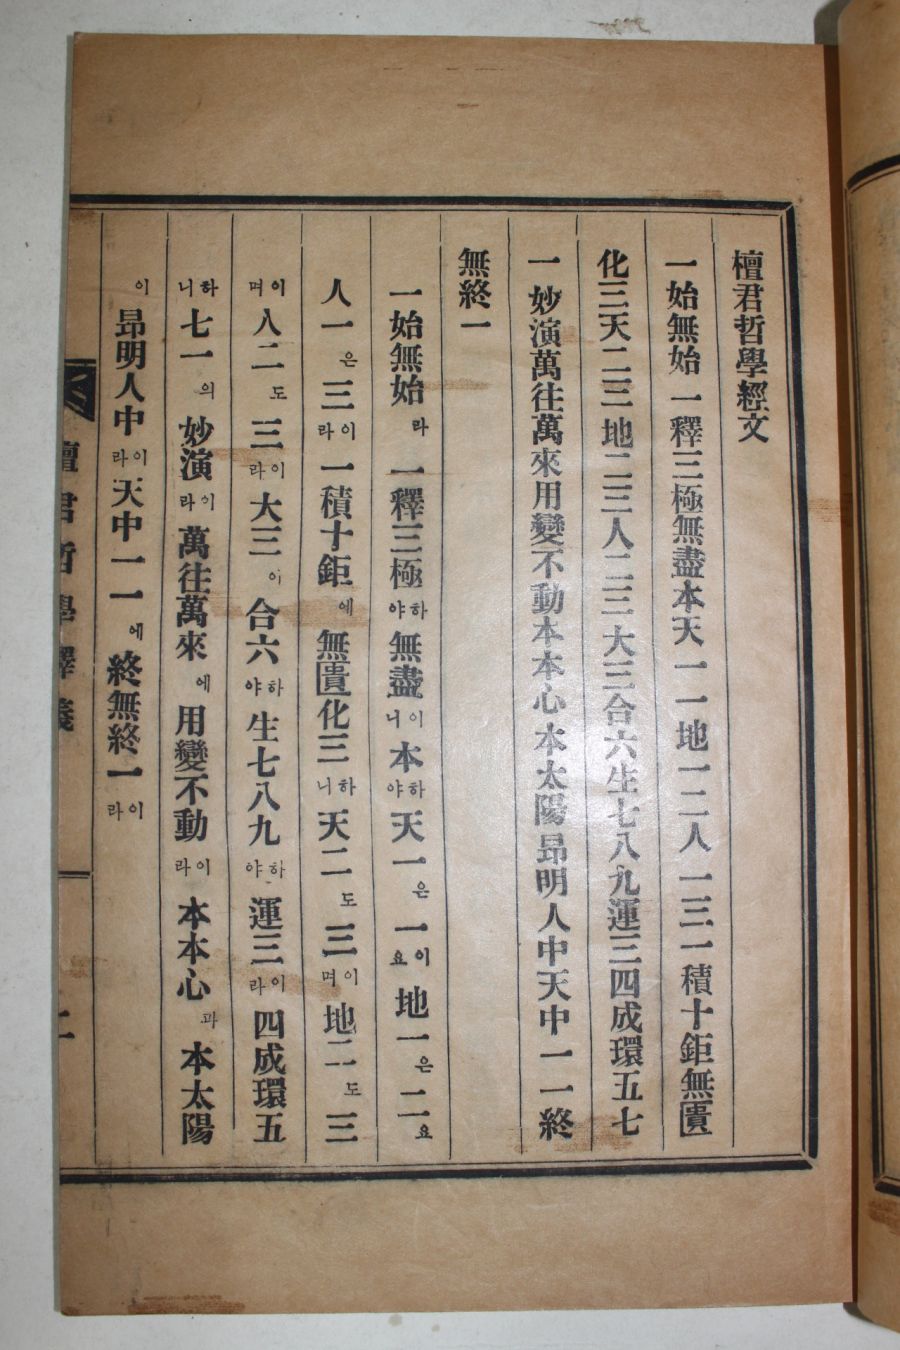 檀君哲學經文
一始無始一釋三極無盡本天一一地一二人一三一積十鉅無匱
化三天二三地二三人二三大三合六生七八九運三四成環五七
一妙演萬往萬來用變不動本本心本太陽昻明人中天中一一終
無終一
一始無始라 一釋三極하야 無盡이니 本하야 天一은 一이요 地一은 二요
人一은 三이라 一積十鉅에 無匱化三하니 天二도 三이며 地二도 三
이며 人二도 三이라 大三이 合六하야 生七八九하야 運三이라 四成環五
하니 七一의 妙演이라 萬往萬來에 用變不動이라 本本心과 本太陽
이 昻明人中이라 天中一一에 終無終一이라
檀君哲學釋義